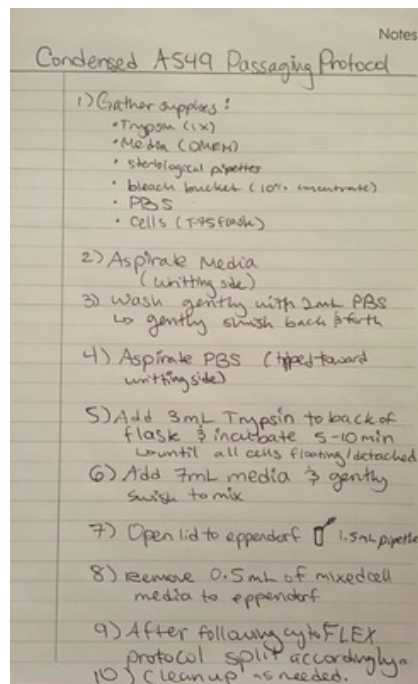 Notes
Condensed A549 Passaging Protocol
1) Gather supplies:
• Trypsin (1X)
• Media (DMEM)
• steriological pipettes
• bleach bucket (10% concentrate)
• PBS
• Cells (T-75 flask)
2) Aspirate Media
(writting side)
3) Wash gently with 2mL PBS
↳ gently swish back & forth
4) Aspirate PBS (tipped toward
writting side)
5) Add 3mL Trypsin to back of
flask & incutbate 5-10 min
↳ until all cells floating/detached
6) Add 7mL media & gently
swish to mix
7) Open lid to eppendorf 1.5mL pipette
8) Remove 0.5mL of mixed cell
media to eppendorf
9) After following cytoFLEX
protocol split accordingly.
10) Clean up as needed.